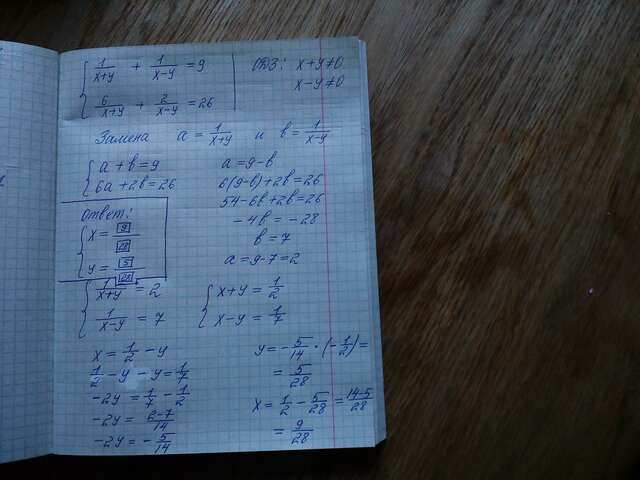 1/(x+y) + 1/(x-y) = 9
6/(x+y) + 2/(x-y) = 26
ОДЗ: x+y≠0
x-y≠0
Замена a = 1/(x+y) и b = 1/(x-y)
a + b = 9
6a + 2b = 26
a = 9-b
6(9-b)+2b = 26
54-6b+2b = 26
-4b = -28
b = 7
a = 9-7 = 2
Ответ:
x = 9/28
y = 5/28
1/(x+y) = 2
1/(x-y) = 7
x+y = 1/2
x-y = 1/7
x = 1/2 - y
1/2 - y - y = 1/7
-2y = 1/7 - 1/2
-2y = (2-7)/14
-2y = -5/14
y = -5/14 · (-1/2) =
= 5/28
x = 1/2 - 5/28 = (14-5)/28
= 9/28